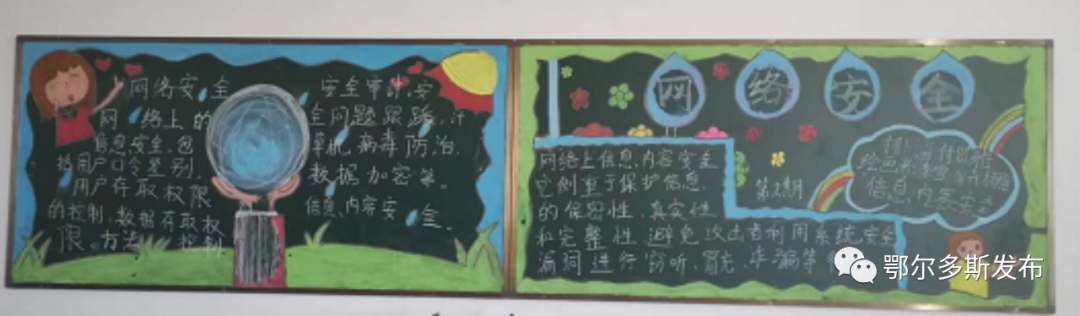 网络安全
网络上的
信息安全,包
括用户口令鉴别,
用户存取权限
的控制,数据存取权
限。方法 控制
安全审计,安
全问题跟踪,计
算机病毒防治,
数据加密等。
信息、内容安全。
网络安全
网络上信息、内容安全
它侧重于保护信息
的保密性、真实性
和完整性 避免攻击者利用系统安全
漏洞进行窃听、冒充、诈漏等
第2期
信息内容安全
鄂尔多斯发布